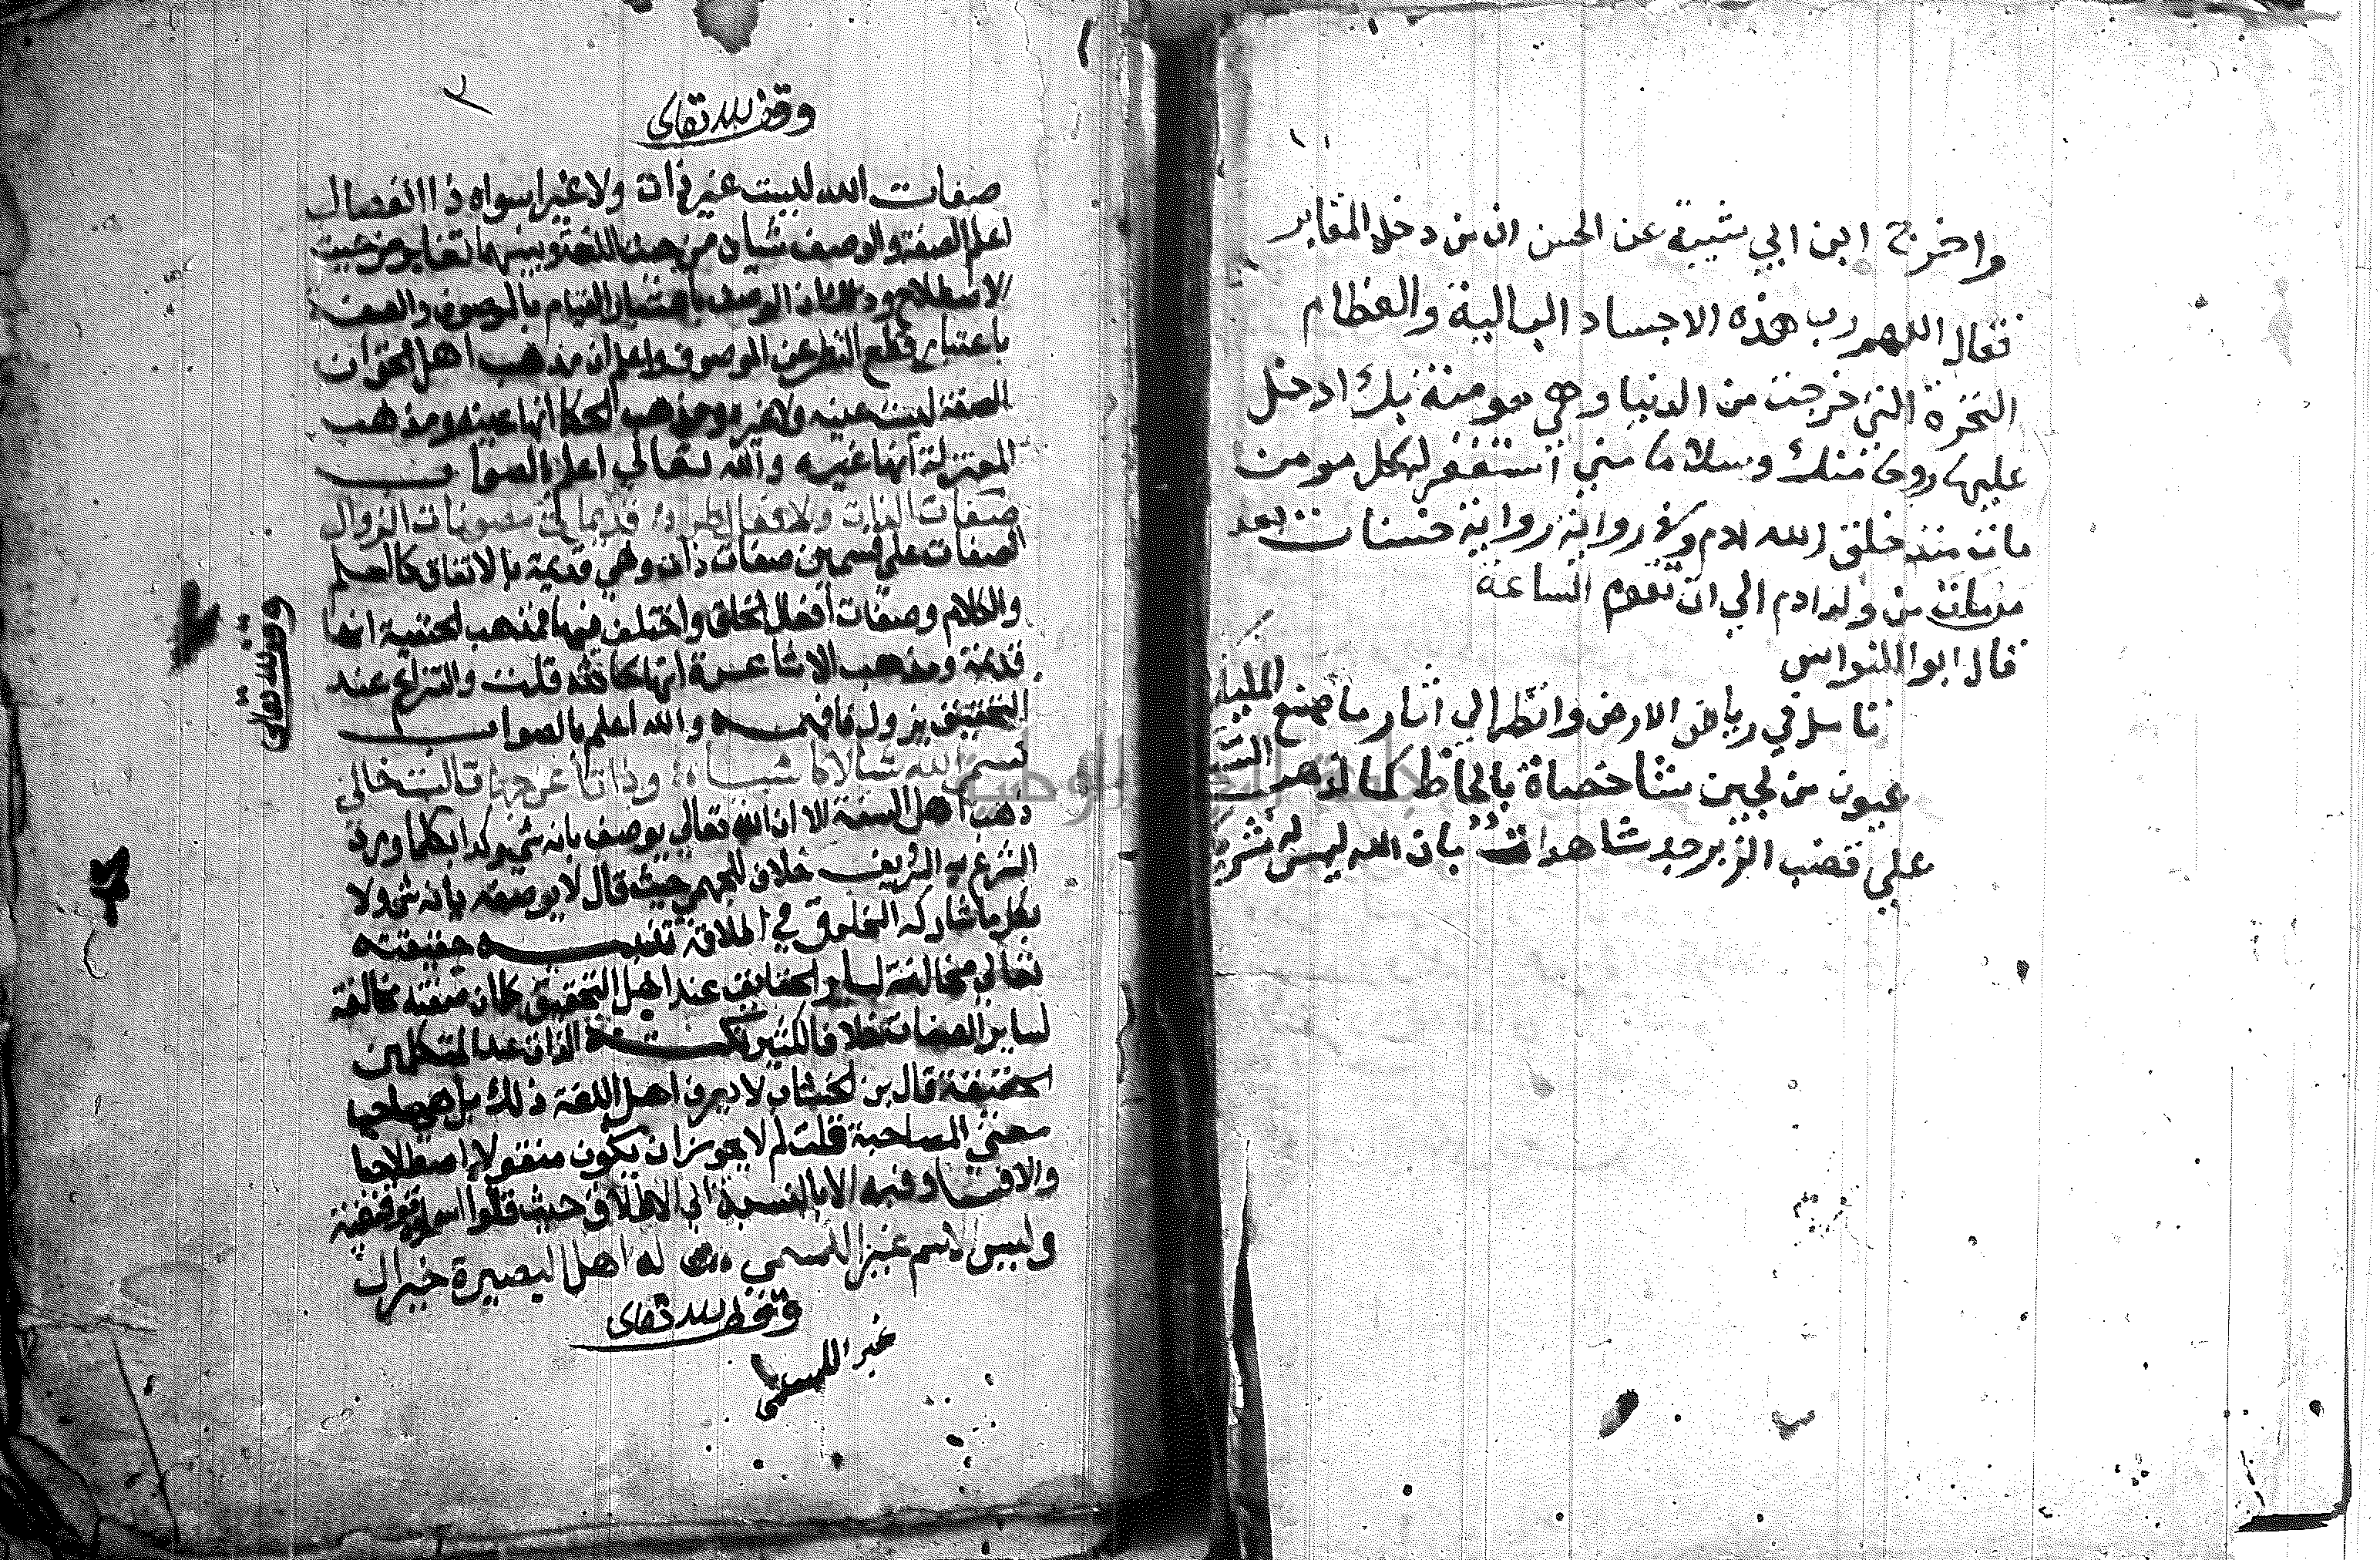 واخرج ابن ابي شيبة عن الحسن ان من دخل المقابر
فقال اللهم رب هذه الاجساد البالية والعظام
النخرة التي خرجت من الدنيا وهي مومنة بك ادخل
عليها روحا منك وسلاما مني استغفر له كل مومن
مات منذ خلق الله ادم وفي رواية رواية حسنات بعد
من مات من ولد ادم الي ان تقوم الساعة
قال ابو النواس
تامل في رياض الارض وانظر الي اثار ما صنع المليك
عيون من لجين شاخصاة بالحاظ كما الذهب
علي قضب الزبرجد شاهدات بان الله ليس له شريك
٢
وقف لله تعالى
صفات الله ليست عين ذات ولا غيرا سواه ذا انفصال
اعلم الصفة والوصف شيان من حيث اللغة وبينهما تغاير من حيث
الاصطلاح وذلك ان الوصف باعتبار القيام بالموصوف والصفة
باعتبار قطع النظر عن الموصوف واعلم ان مذهب اهل الحق ان
الصفة ليست عينه ولا غيره ومذهب الحكما انها عينه ومذهب
المعتزلة انها غيره والله تعالي اعلم بالصواب
صفات الذات والافعال طرا قديمات مصونات الزوال
الصفات علي قسمين صفات ذات وهي قديمة بالاتفاق كالعلم
والكلام وصفات افعال كالخلق واختلف فيها فمذهب الحنفية انها
قديمة ومذهب الاشاعرة انها حادثه قلت والنزاع عند
التحقيق يزول فافهمه والله اعلم بالصواب
نسمي الله شيا لا كاشياء وذاتا عن جهات الست خالي
ذهب اهل السنة الا ان الله تعالي يوصف بانه شي وكذا بكلما ورد
الشرع به الشريف خلاف للجهمي حيث قال لا يوصف بانه شي ولا
بكل ما شاركه المخلوق في اطلاقه تنبيه حقيقته
تعالي مخالفة لساير الحقايق عند اهل التحقيق كما ان صفته مخالفة
لساير الصفات خلافا لكثير نكتة الذات عند المتكلمين
الحقيقة قال بن الخشاب لا يعرف اهل اللغة ذلك بل هي صاحبة
معني المصاحبة قلت لم لا يجوز ان يكون منقولا اصطلاحيا
وليس الاسم غيرا للمسمي لدي اهل البصيرة خير ال
وقف لله تعالى
غير اللمسمي
وقف لله تعالى